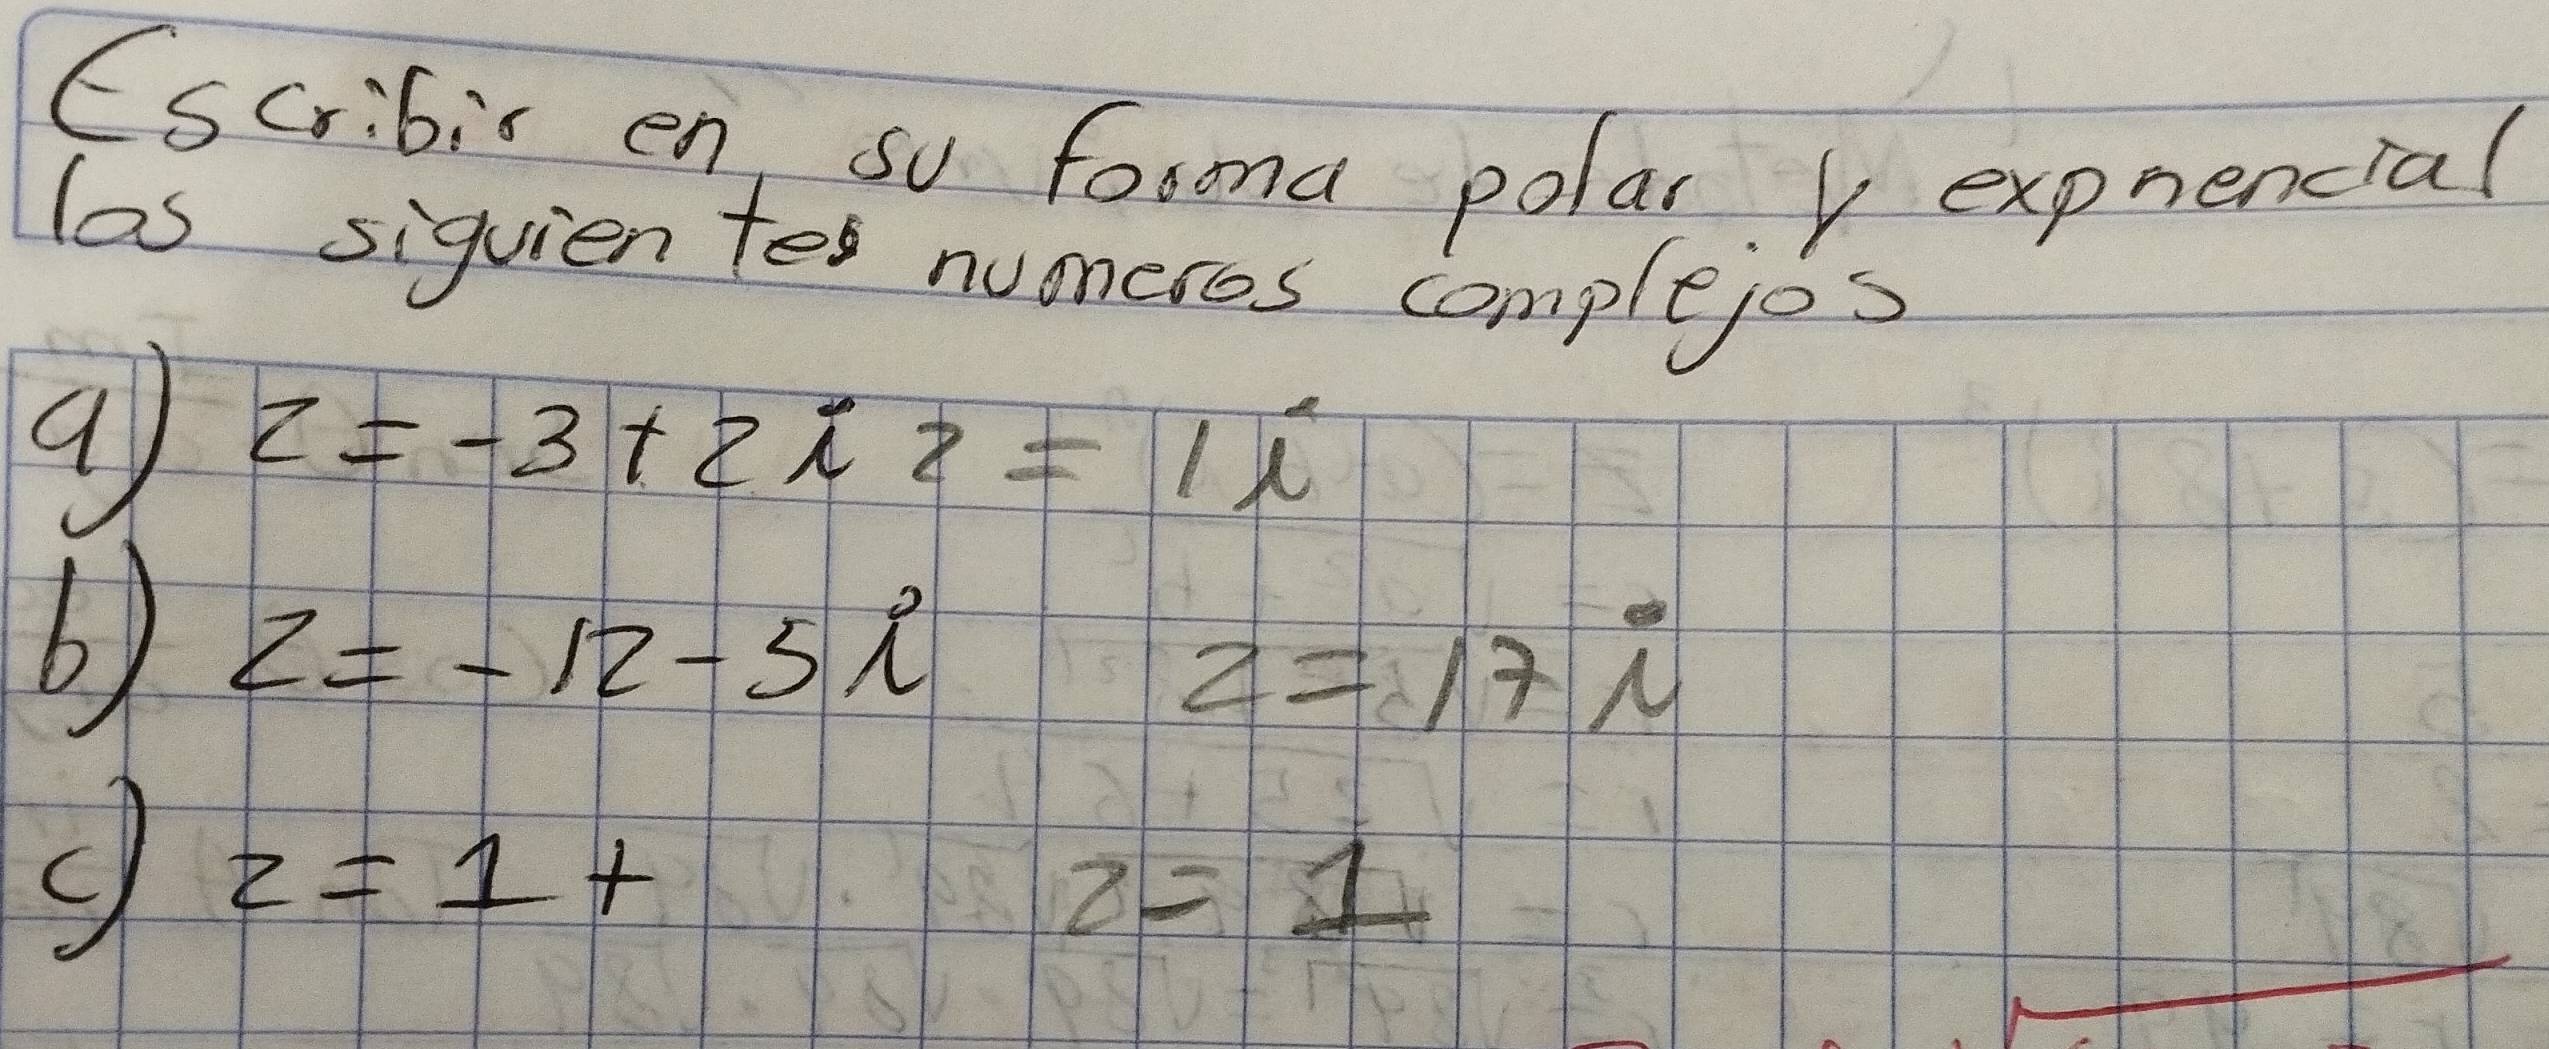 Escribir en su forma polar y expnencial
los siguientes numeros complejos
a) z = -3 + 2i z = 1i
b) z = -12 - 5i z = 17i
c) z = 1 + z = 1